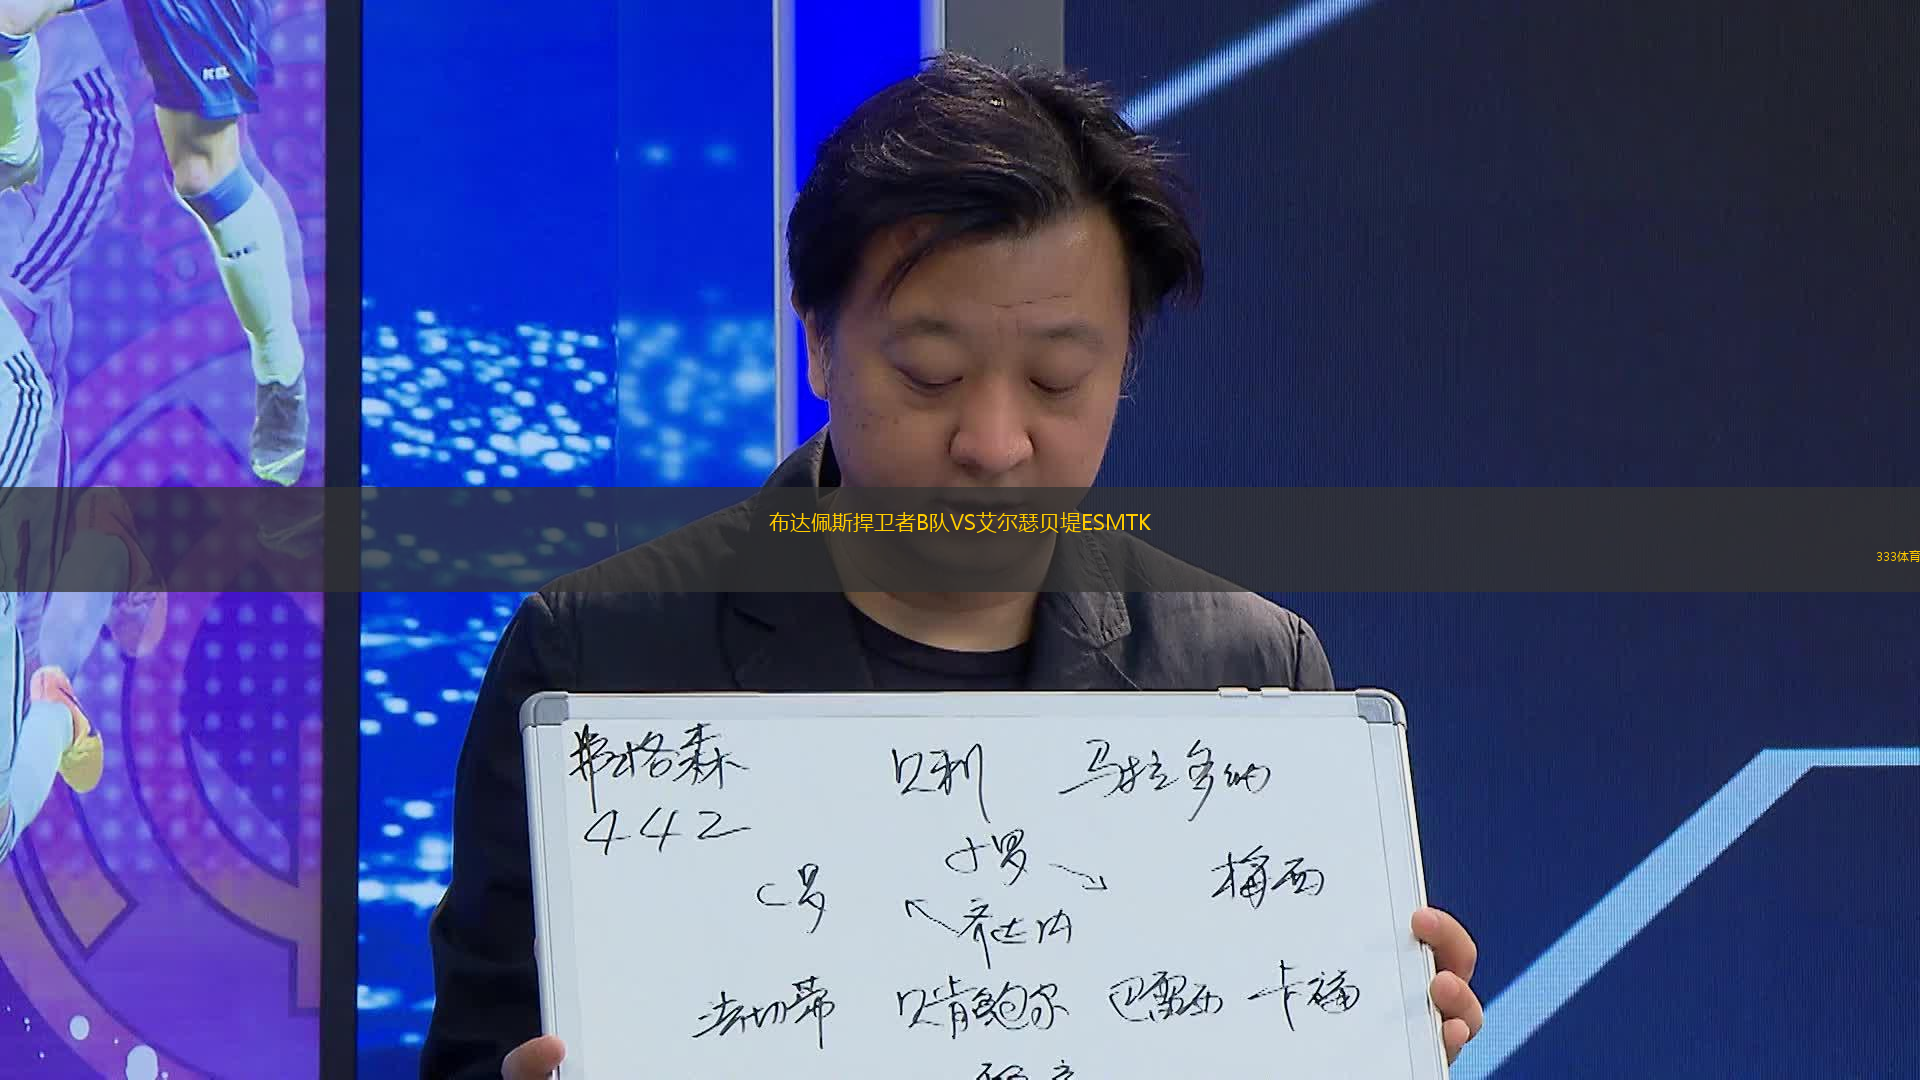 布达佩斯捍卫者B队VS艾尔瑟贝堤ESMTK
333体育
弗格森 贝利 马拉多纳
442
小罗
C罗 梅西
齐达内
法切蒂 贝肯鲍尔 巴雷西 卡福